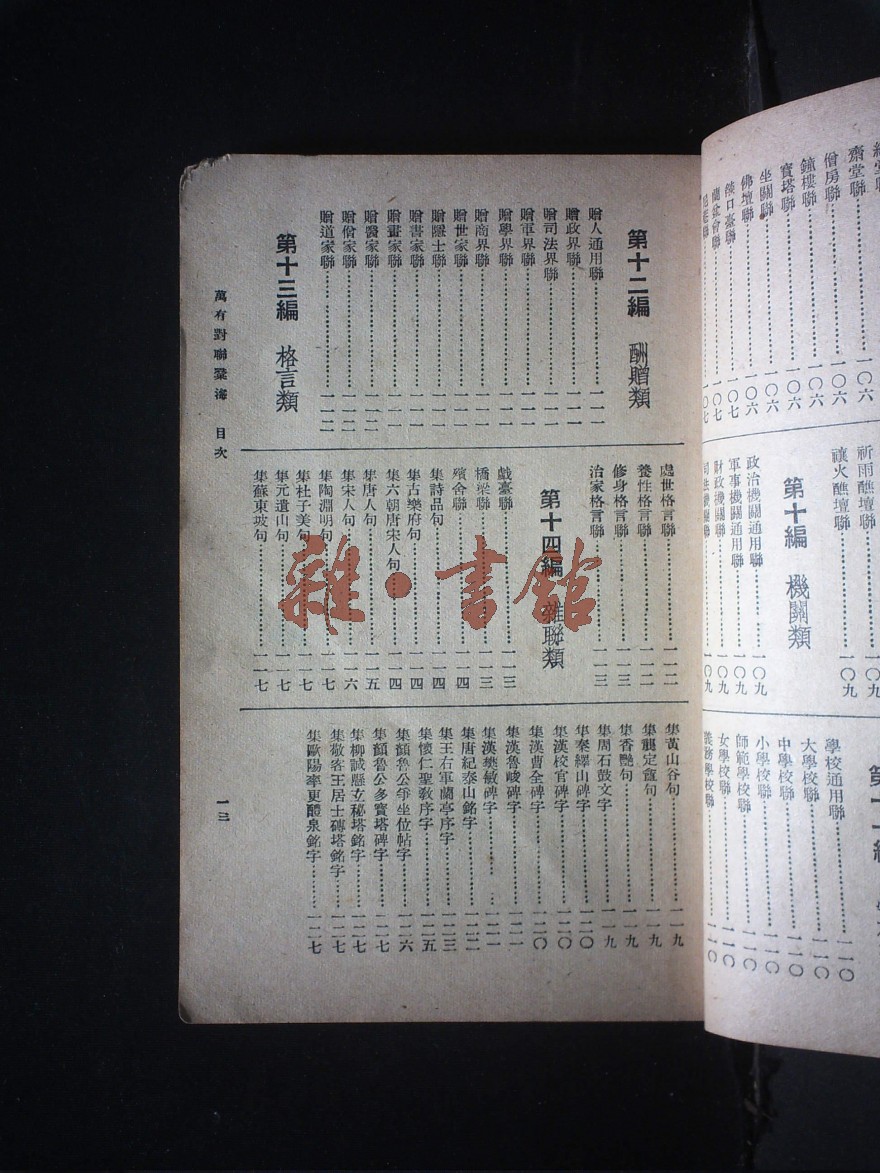 齋堂聯………一〇六
僧房聯………一〇六
鐘樓聯………一〇六
寶塔聯………一〇六
坐關聯………一〇六
佛壇聯………一〇六
燄口臺聯………一〇七
蘭盆會聯………一〇七
一〇七
祈雨醮壇聯………一〇九
禳火醮壇聯………一〇九
第十編 機關類
政治機關通用聯………一〇九
軍事機關通用聯………一〇九
財政機關聯………一〇九
司法機關聯………一〇九
學校通用聯………一一〇
大學校聯………一一〇
中學校聯………一一〇
小學校聯………一一〇
師範學校聯………一一〇
女學校聯………一一〇
義務學校聯………一一〇
第十二編 酬贈類
贈人通用聯………一一一
贈政界聯………一一一
贈司法界聯………一一一
贈軍界聯………一一一
贈學界聯………一一一
贈商界聯………一一一
贈世家聯………一一一
贈隱士聯………一一一
贈書家聯………一一一
贈畫家聯………一一一
贈醫家聯………一一二
贈僧家聯………一一二
贈道家聯………一一二
第十三編 格言類
處世格言聯………一一二
養性格言聯………一一二
修身格言聯………一一三
治家格言聯………一一三
第十四編 雜聯類
戲臺聯………一一三
橋梁聯………一一三
殯舍聯………一一四
集詩品句………一一四
集古樂府句………一一四
集六朝唐宋人句………一一四
集唐人句………一一五
集宋人句………一一六
集陶淵明句………一一七
集杜子美句………一一七
集元遺山句………一一七
集蘇東坡句………一一七
集黃山谷句………一一九
集龔定盦句………一一九
集香艷句………一一九
集周石鼓文字………一一九
集秦繹山碑字………一二〇
集漢校官碑字………一二〇
集漢曹全碑字………一二〇
集漢魯峻碑字………一二一
集漢樊敏碑字………一二一
集唐紀泰山銘字………一二二
集王右軍蘭亭序字………一二三
集懷仁聖教序字………一二五
集顏魯公爭坐位帖字………一二六
集顏魯公多寶塔碑字………一二七
集柳誠懸玄秘塔銘字………一二七
集敬客王居士磚塔銘字………一二七
集歐陽率更醴泉銘字………一二七
萬有對聯彙海 目次
一三
雜·書館